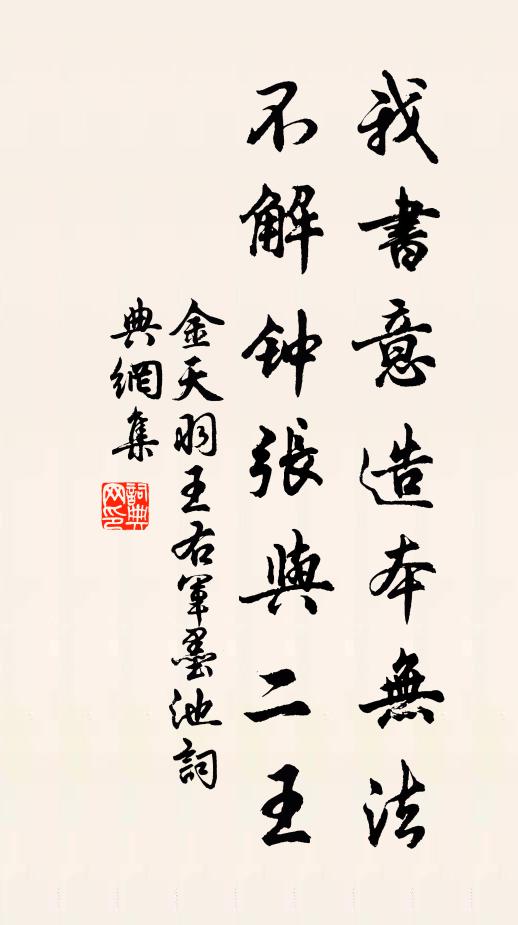 我書意造本無法
不解钟張與二王
金天羽王右軍墨池詞
典網集
詞典网印